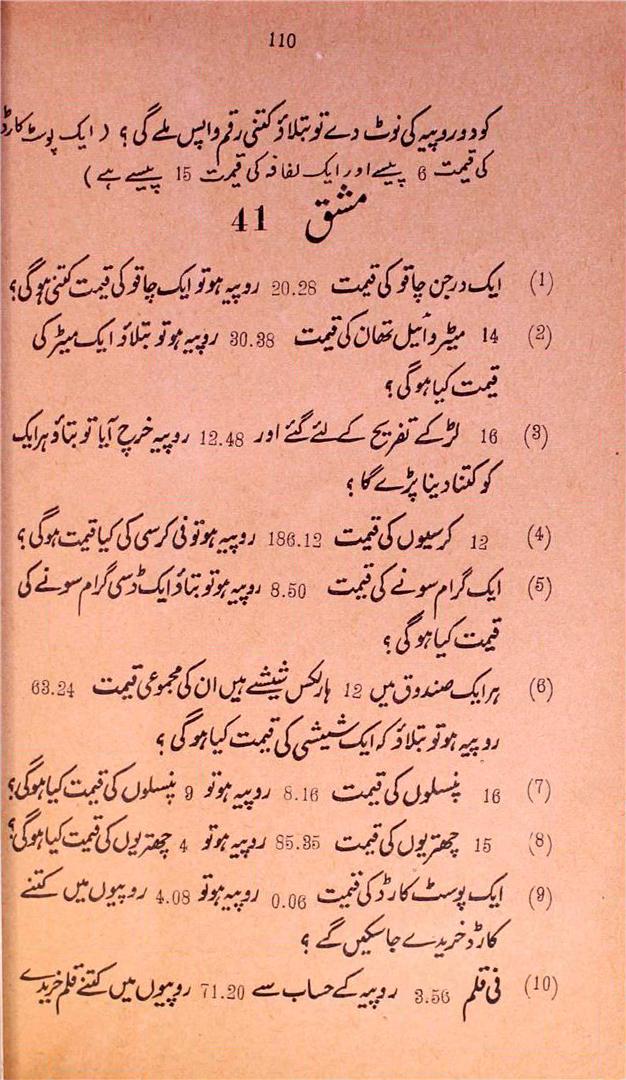 110
کو دو روپیہ کی نوٹ دے تو بتلاؤ کتنی رقم واپس ملے گی؟ (ایک پوسٹ کارڈ
کی قیمت 6 پیسے اور ایک لفافہ کی قیمت 15 پیسے ہے)
مشق 41
(1) ایک درجن چاقو کی قیمت 20.28 روپیہ ہو تو ایک چاقو کی قیمت کتنی ہوگی؟
(2) 14 میٹر وائیل تھان کی قیمت 30.38 روپیہ ہو تو بتلاؤ ایک میٹر کی
قیمت کیا ہو گی؟
(3) 16 لڑکے تفریح کے لئے گئے اور 12.48 روپیہ خرچ آیا تو بتاؤ ہر ایک
کو کتنا دینا پڑے گا؟
(4) 12 کرسیوں کی قیمت 186.12 روپیہ ہو تو فی کرسی کی کیا قیمت ہوگی؟
(5) ایک گرام سونے کی قیمت 8.50 روپیہ ہو تو بتاؤ ایک ڈسی گرام سونے کی
قیمت کیا ہو گی؟
(6) ہر ایک صندوق میں 12 ہارلکس شیشے ہیں ان کی مجموعی قیمت 63.24
روپیہ ہو تو بتلاؤ کہ ایک شیشی کی قیمت کیا ہو گی؟
(7) 16 پنسلوں کی قیمت 8.16 روپیہ ہو تو 9 پنسلوں کی قیمت کیا ہوگی؟
(8) 15 چھتریوں کی قیمت 85.35 روپیہ ہو تو 4 چھتریوں کی قیمت کیا ہوگی؟
(9) ایک پوسٹ کارڈ کی قیمت 0.06 روپیہ ہو تو 4.08 روپیوں میں کتنے
کارڈ خریدے جا سکیں گے؟
(10) فی قلم 3.56 روپیہ کے حساب سے 71.20 روپیوں میں کتنے قلم خریدے